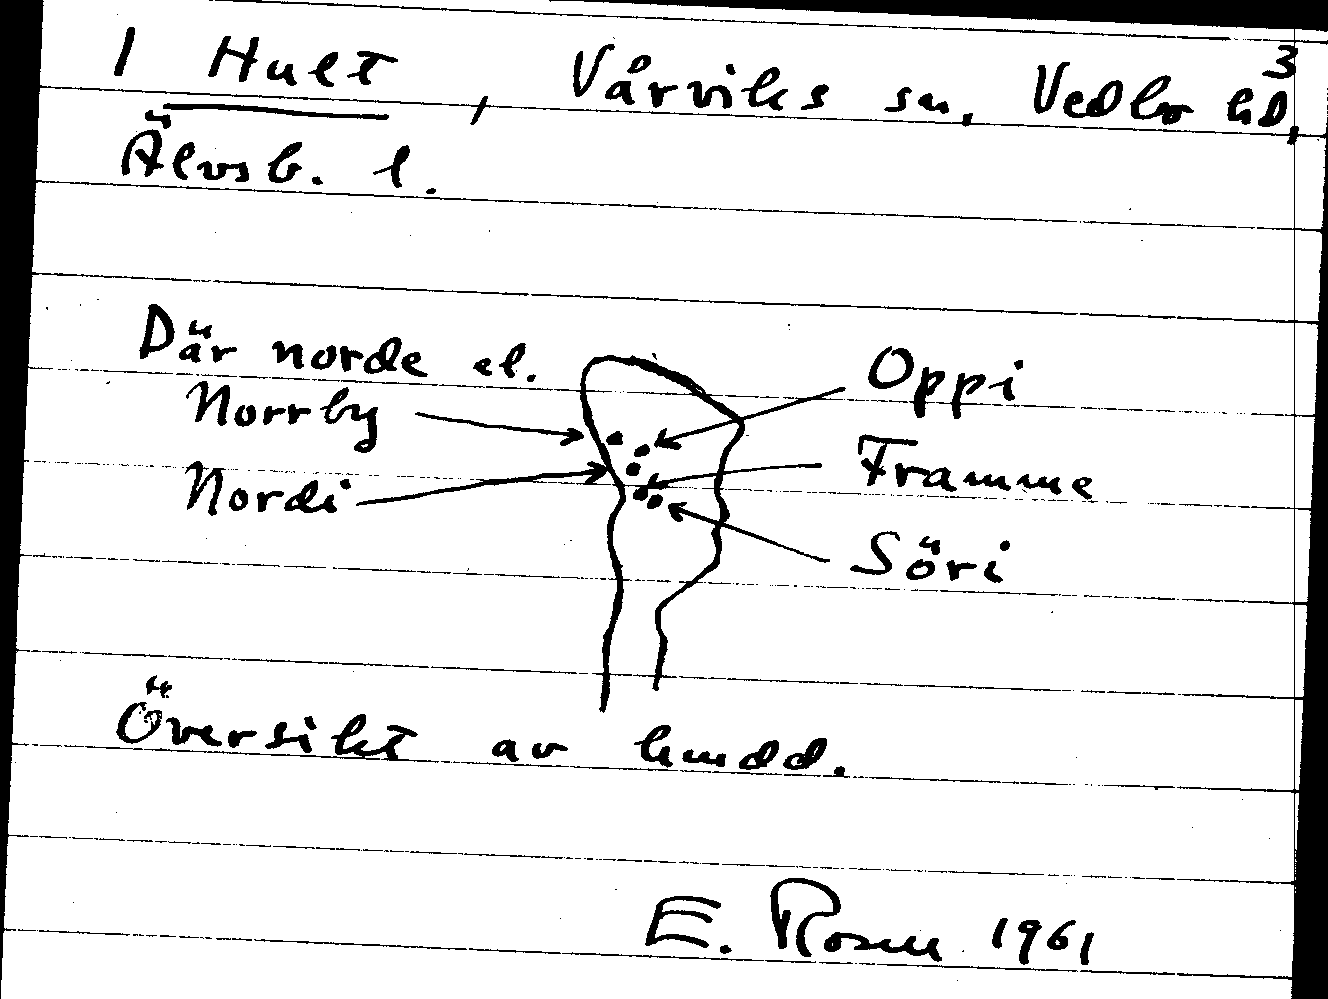 3
1 Hult, Vårviks sn, Vedbo hd,
Älvsb. l.
Där norde el.
Norrby
Nordi
Oppi
Framme
Söri
Översikt av hmdd.
E. Rosen 1961